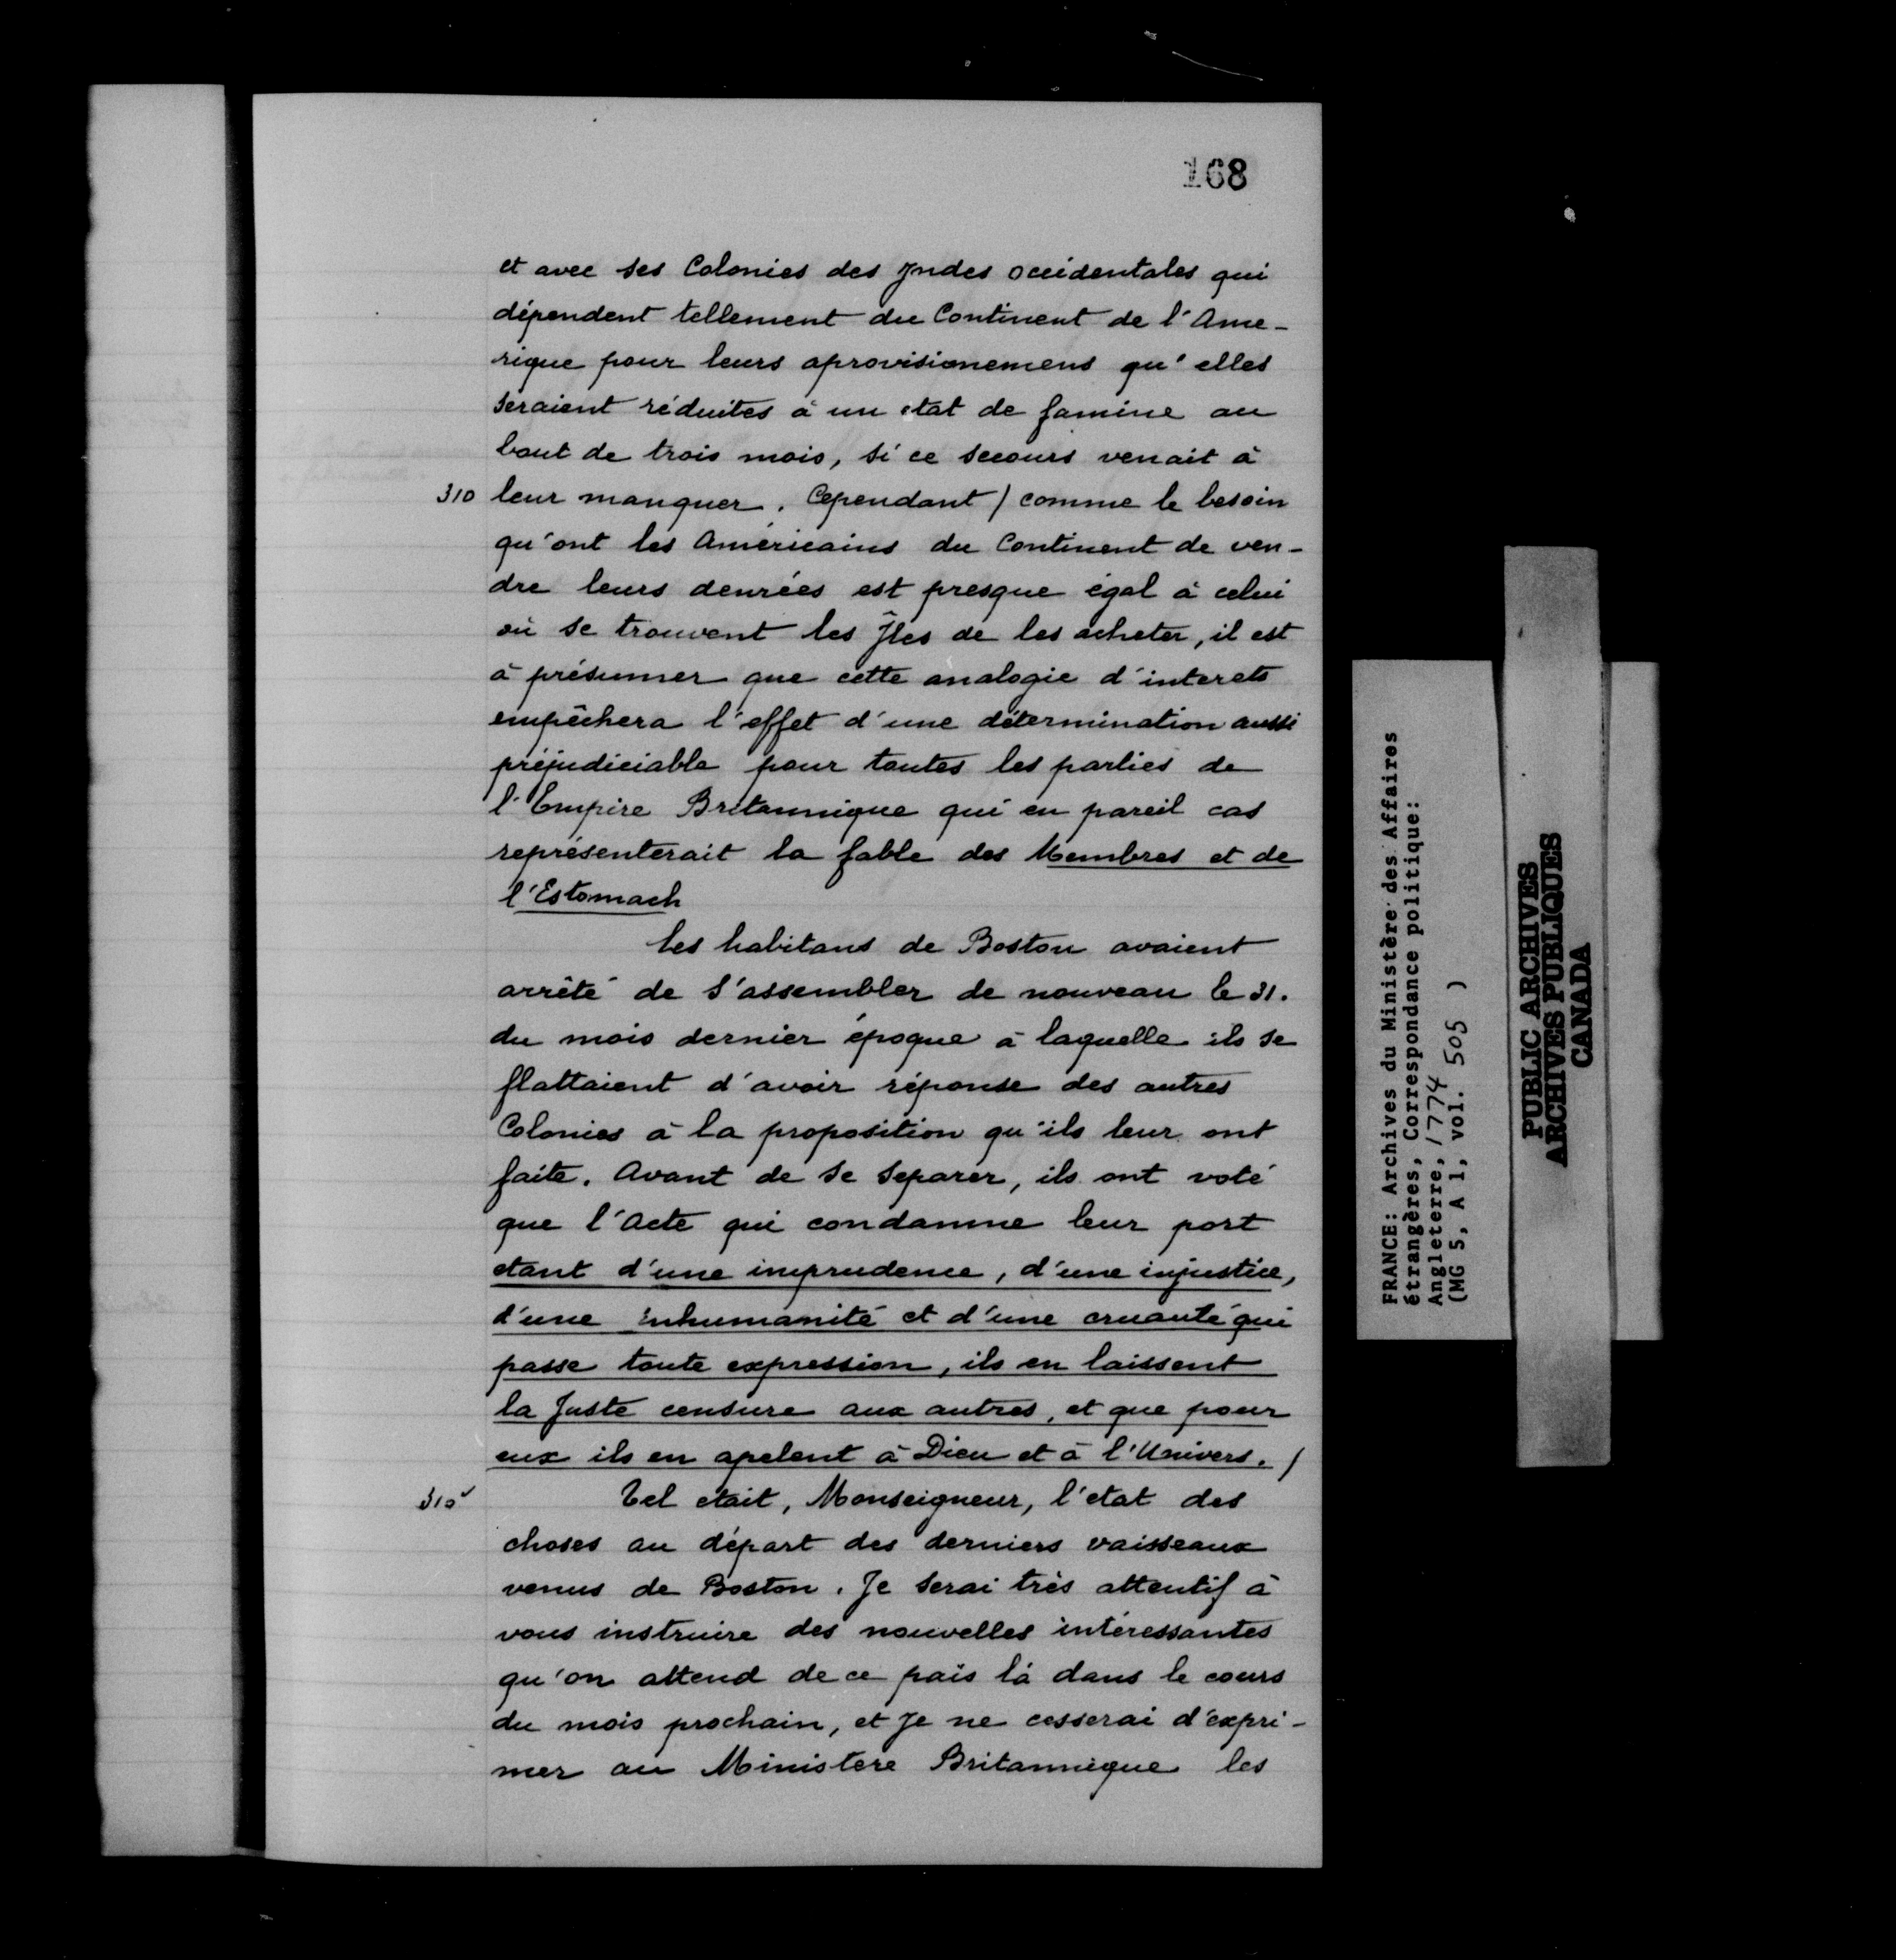 168
et avec ses Colonies des Jndes occidentales qui
dépendent tellement du Continent de l'Ame-
rique pour leurs aprovisionemens qu'elles
seraient réduites à un etat de famine au
bout de trois mois, si ce secours venait à
310 leur manquer. Cependant / comme le besoin
qu'ont les Américains du Continent de ven-
dre leurs denrées est presque égal à celui
où se trouvent les Jles de les acheter, il est
à présumer que cette analogie d'interets
empêchera l'effet d'une détermination aussi
préjudiciable pour toutes les parties de
l'Empire Britannique qui en pareil cas
représenterait la fable des Membres et de
l'Estomach
Les habitans de Boston avaient
arrêté de s'assembler de nouveau le 31.
du mois dernier époque à laquelle ils se
flattaient d'avoir réponse des autres
Colonies à la proposition qu'ils leur ont
faite. Avant de se separer, ils ont voté
que l'Acte qui condamne leur port
etant d'une imprudence, d'une injustice,
d'une inhumanité et d'une cruauté qui
passe toute expression, ils en laissent
la Juste censure aux autres, et que pour
eux ils en apelent à Dieu et à l'Univers. /
310v Tel etait, Monseigneur, l'etat des
choses au départ des derniers vaisseaux
venus de Boston. Je serai très attentif à
vous instruire des nouvelles intéressantes
qu'on attend de ce païs là dans le cours
du mois prochain, et Je ne cesserai d'expri-
mer au Ministere Britannique les
FRANCE: Archives du Ministère des Affaires
étrangères, Correspondance politique:
Angleterre, 1774
(MG 5, A 1, vol. 505 )
PUBLIC ARCHIVES
ARCHIVES PUBLIQUES
CANADA